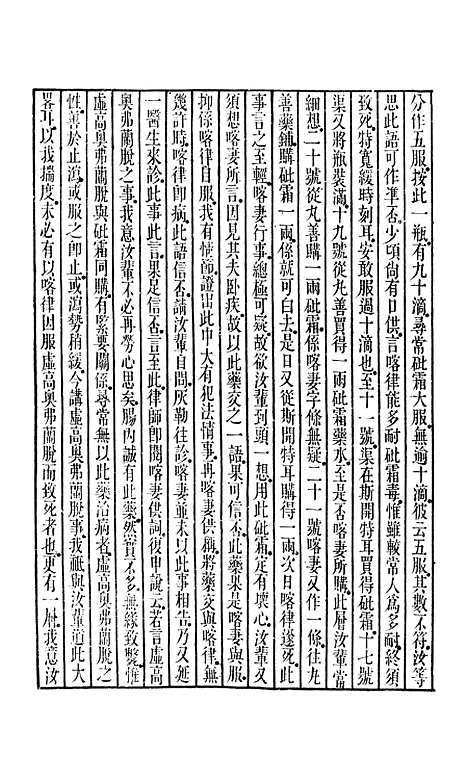 分作五服按此一瓶有九十滴尋常砒霜大服無逾十滴彼云五服其數不符汝等
思此語可作準否少頃尚有口供言喀律能多耐砒霜毒惟雖較常人爲多耐終須
致死特寬緩時刻耳安敢服過十滴也至十一號渠在斯開特耳買得砒霜十七號
渠又將瓶裝滿十九號從九善買得一兩砒霜藥水至是否喀妻所購此層汝輩當
細想二十號從九善購一兩砒霜係喀妻字條無疑二十一號喀妻又作一條往九
善藥鋪購砒霜一兩係就可白去是日又從斯開特耳購得一兩次日喀律遂死此
事言之至輕喀妻行事總極可疑故欲汝輩到頭一想用此砒霜定有壞心汝輩又
須想喀妻所言因見其夫卧疾故以此藥交之一語果可信否此藥是喀妻與服
抑係喀律自服我有情節證出此中大有犯法情事再喀妻供稱將藥交與喀律無
幾許時喀律即病此語信否請汝輩自問灰勒往診喀妻並未以此事相告乃又延
一醫生來診此事此言果足信否言至此律師即閱喀妻供詞復申說云若言虛高
奧弗蘭脫之事我意汝輩不必再勞心思矣腸內誠有此藥然實不多無緣致斃惟
虛高奧弗蘭脫與砒霜同購有緊要關係尋常無以此藥治病者虛高奧弗蘭脫之
性藥於止瀉或服之即止或瀉勢稍緩今講虛高奧弗蘭脫事我祇與汝輩道此大
畧耳以我揣度未必有以喀律因服虛高奧弗蘭脫而致死者也更有一層我意汝